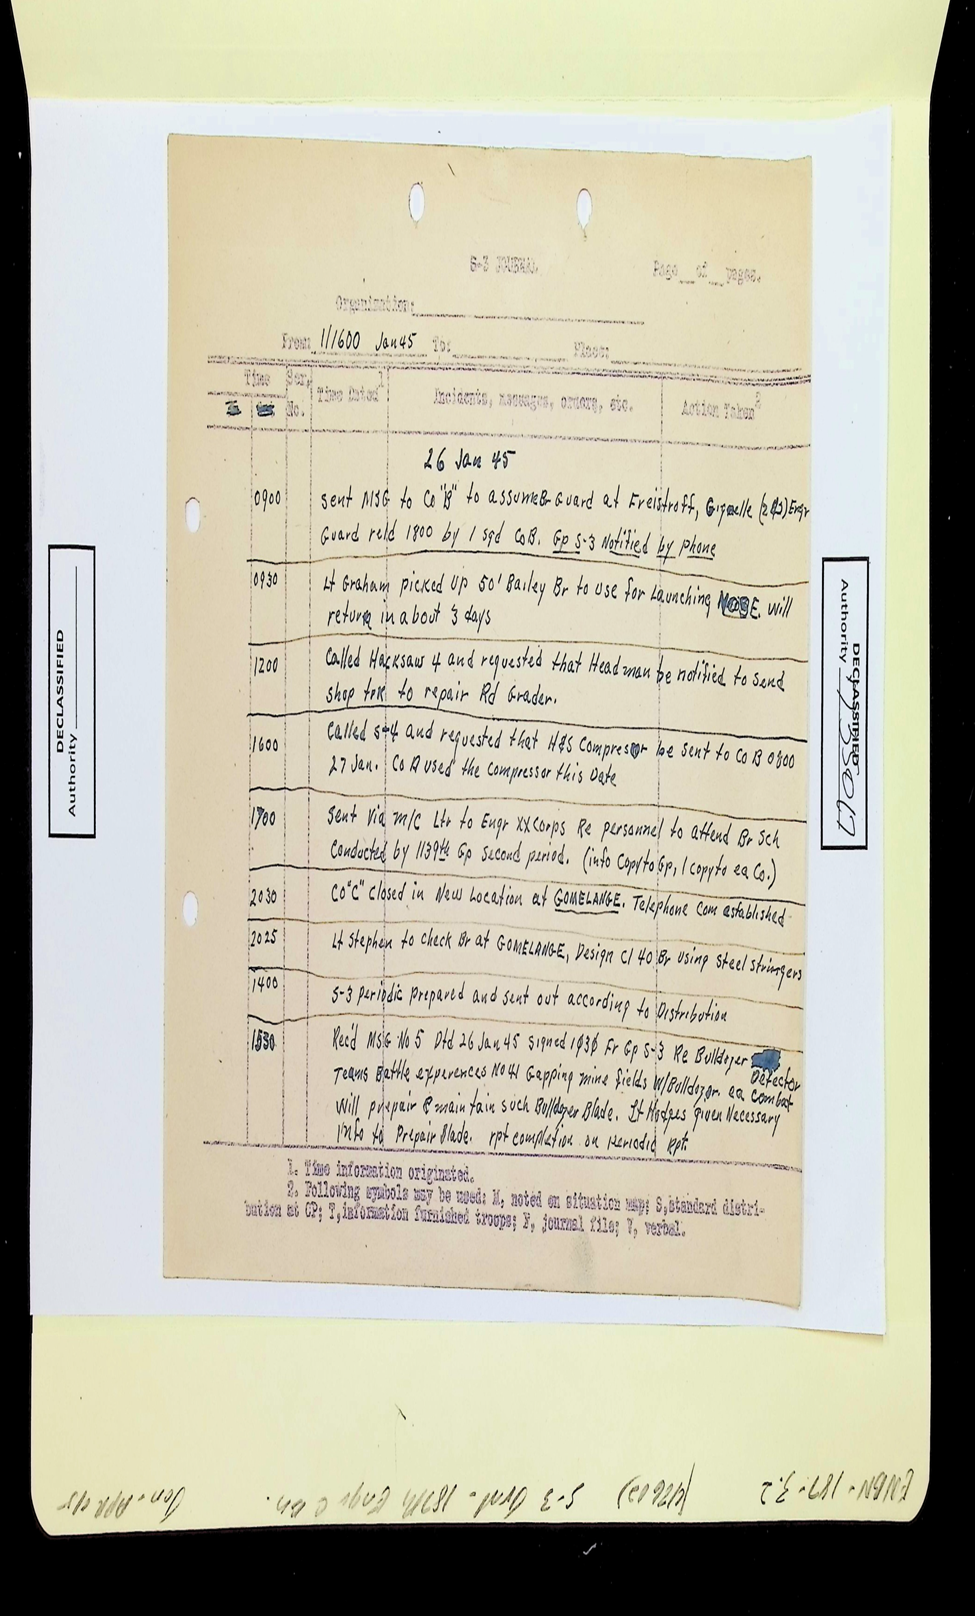 S-3 JOURNAL
Page__of__pages.
Organization:
From: 1/1600 Jan 45 To: Place:
Time Ser. No. Time Dated¹ Incidents, messages, orders, etc. Action Taken²
26 Jan 45
0900 Sent MSG to Co "B" to assume Br Guard at Freistroff, (2 Br) Engr
Guard reld 1800 by 1 sqd Co B. Gp S-3 Notified by phone
0930 Lt Graham picked up 50' Bailey Br to use for Launching NOSE. Will
return in about 3 days
1200 Called Hacksaw 4 and requested that Headman be notified to send
shop trk to repair Rd Grader.
1600 Called S-4 and requested that H&S Compressor be sent to Co B 0800
27 Jan. Co B used the Compressor this Date
1700 Sent Via M/C Ltr to Engr XX Corps Re personnel to attend Br Sch
Conducted by 1139th Gp Second period. (info Copy to Gp, 1 copy to ea Co.)
2030 Co "C" Closed in New Location at GOMELANGE. Telephone Com established
2025 Lt Stephen to check Br at GOMELANGE, Design Cl 40 Br using steel stringers
1400 S-3 periodic Prepared and sent out according to Distribution
1530 Rec'd MSG No 5 Dtd 26 Jan 45 Signed 1030 Fr Gp S-3 Re Bulldozer Detector
Teams Battle experences No 41 Gapping mine fields W/Bulldozer. ea Combat
Will prepair & maintain such Bulldozer Blade. Lt Hodges given Necessary
info to Prepair Blade. rpt completion on Periodic Rpt
1. Time information originated.
2. Following symbols may be used: M, noted on situation map; S, standard distri-
bution at CP; T, information furnished troops; F, journal file; V, verbal.
DECLASSIFIED
Authority
DECLASSIFIED
Authority 735017
ENBN-187-3.2 S-3 Jrnl - 187th Engr C Bn. Jan-Apr 45